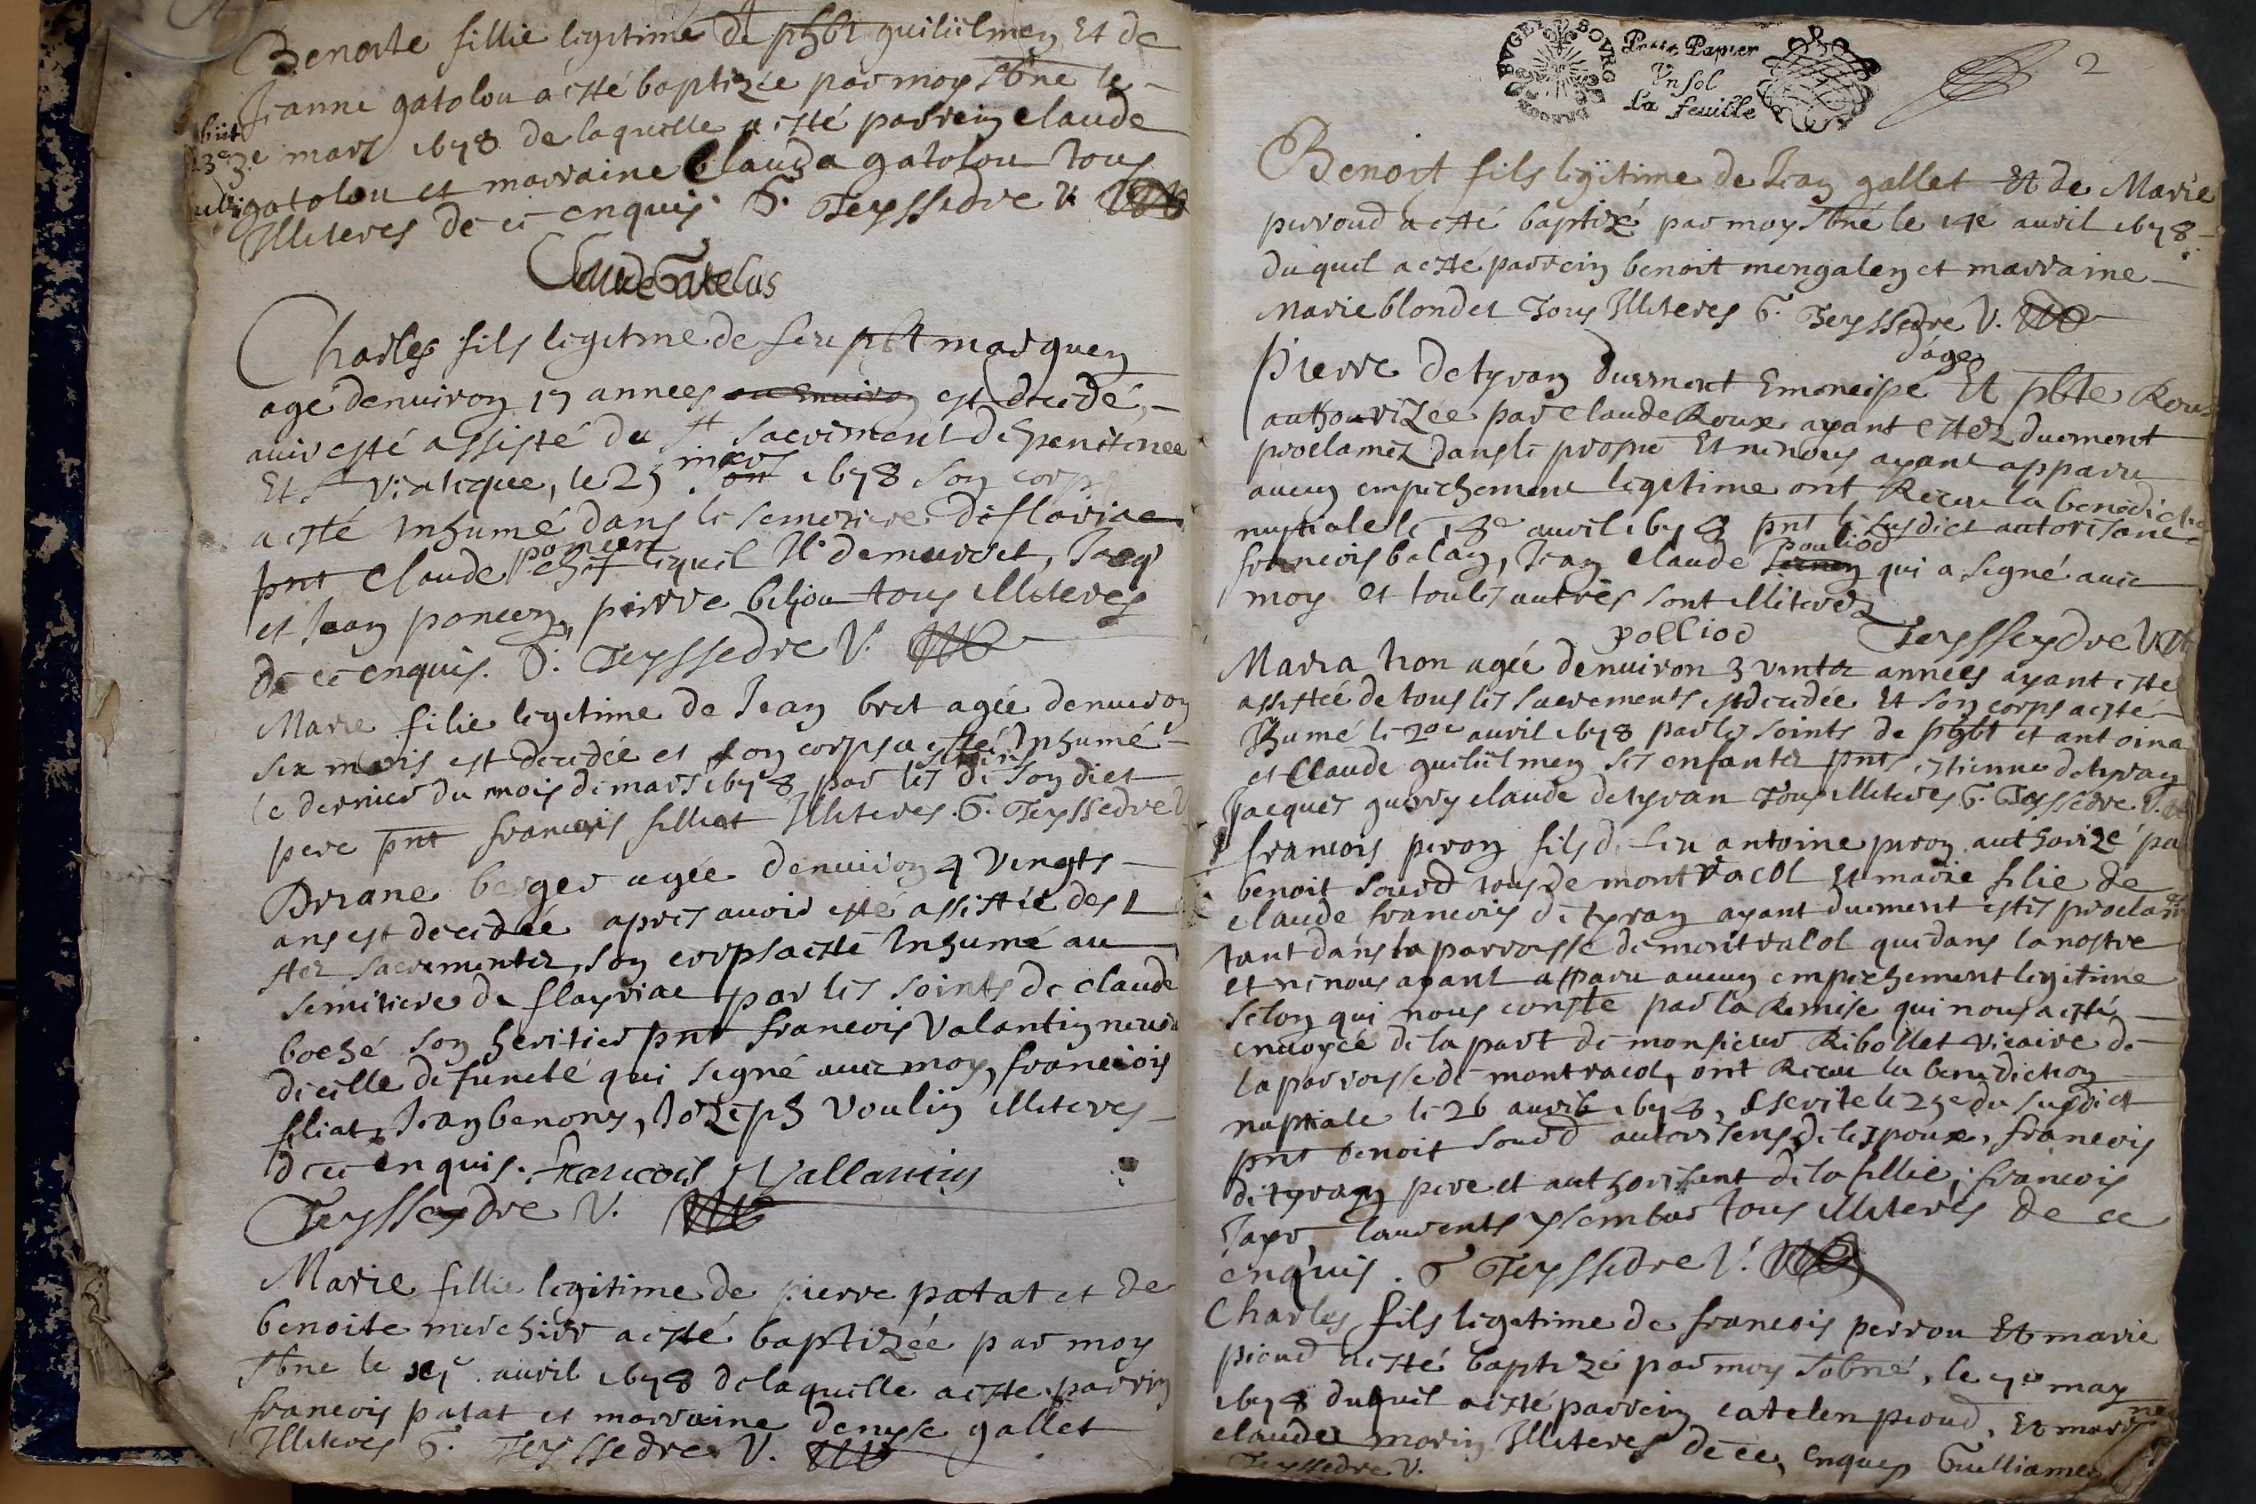 Benoite fillie legitime de phbt guiliilmen Et de
Jeanne gatolou a esté baptizée par moy sbne le
3e mars 1678 de laquelle a esté parrein Claude
gatolou et marraine Clauda gatolou tous
Illiteres de ce enquis. G. Teyssedre V.
Claude Gatelus
Charles fils legitme de feu pht marguen
agé denuiron 17 annees ou enuiron est decedé,
auir esté assisté du st sacrement de penitence
Et st viatique, le 25 mars 1678 son corps
a esté Inhumé dans le semetiere de flaviac
pnt Claude poncen lequel Il demurret, Jacq
et Jean poncen, pierre biljou tous illiteres
de ce enquis. G. Teyssedre V.
Marie filie legitime de Jean bret agée denuiron
six mois est decedée et son corps a esté Inhumé
le dernier du mois de mars 1678 par les soins de son dict
pere pnt francois filliat Illiteres. G. Teyssedre V
Driane berger agée denuiron 4 vingts
ans est decedée apres auoir esté assistée des st
sacrementz, son corps a esté Inhumé au
semitiere de flayriac par les soints de claude
boché son heritier pnt francois Valantin neueu
dicelle defuncte qui segné auec moy, francois
filiat, Jean benony, Jozeph Voulin illiteres
de ce enquis. francois Vallantin
Teysseydre V.
Marie fillie legitime de pierre patat et de
benoite merchier a esté baptizée par moy
sbne le auril 1678 de laquelle a este parrin
francois patat et marraine denyse gallet
Illiteres G. Teyssedre V.
BUGEY BOURG
Petit Papier
Un sol
La feuille
2
Benoit fils legitime de Jean gallet Et de Marie
perroud a esté baptizé par moy sbné le 14e auril 1678
du quel a esté parrein benoit mengalen et marraine
Marie blondet Tous Illiteres G. Teyssedre V.
d'age
Pierre detyran duement Emancipé Et phte Roux
authourizée par Claude Roux ayant estez duement
proclamez dans le prosne Et ne nous ayant apparu
aucun empechement legitime ont Receu la benedictio
nuptiale le 18e auril 1678 pnt le susdict autorisane
francois balan, Jean Claude pouliod qui a segné auec
moy et tous les autres sont illiterez
polliod Teysseydre V.
Maria hon agée denuiron 3 vintz années ayant este
assistée de tous les sacrements est decedée Et son corps a esté
Ihumé le 20e auril 1678 par les soints de phbt et antoina
et Claude guiliilmen ses enfantz pnts, estienne detyran
Jacques guerry claude detyran Tous illiteres G. Teyssedre V.
francois peron fils de feu antoine peron authorizé par
benoit sourd tous de montracol Et marie filie de
claude francois detyran ayant duement estes proclam
tant dans la parroisse de montracol que dans la nostre
et ne nous ayant apparu aucun empechement legitime
selon qui nous conste par la Remise qui nous a esté
enuoyée de la part de monsieur Ribollet vicaire de
la parroisse de montracol, ont Receu la benediction
nuptiale le 26 auril 1678, Escrite le 29e du susdict
pnt benoit sourd autorisens de lespoux, francois
detyran pere et authorisent de la fillie, francois
Tayr, laurents tous illiterés de ce
enquis. G Teyssedre V.
Charles fils legetime de francois perrou Et marie
pioud a esté baptizé par moy sobné, le 7e may
1678 duquel a esté parrein catelen pioud, Et marrene
claude morin Illiteres de ce enques Guilliamen
Teyssedre V.